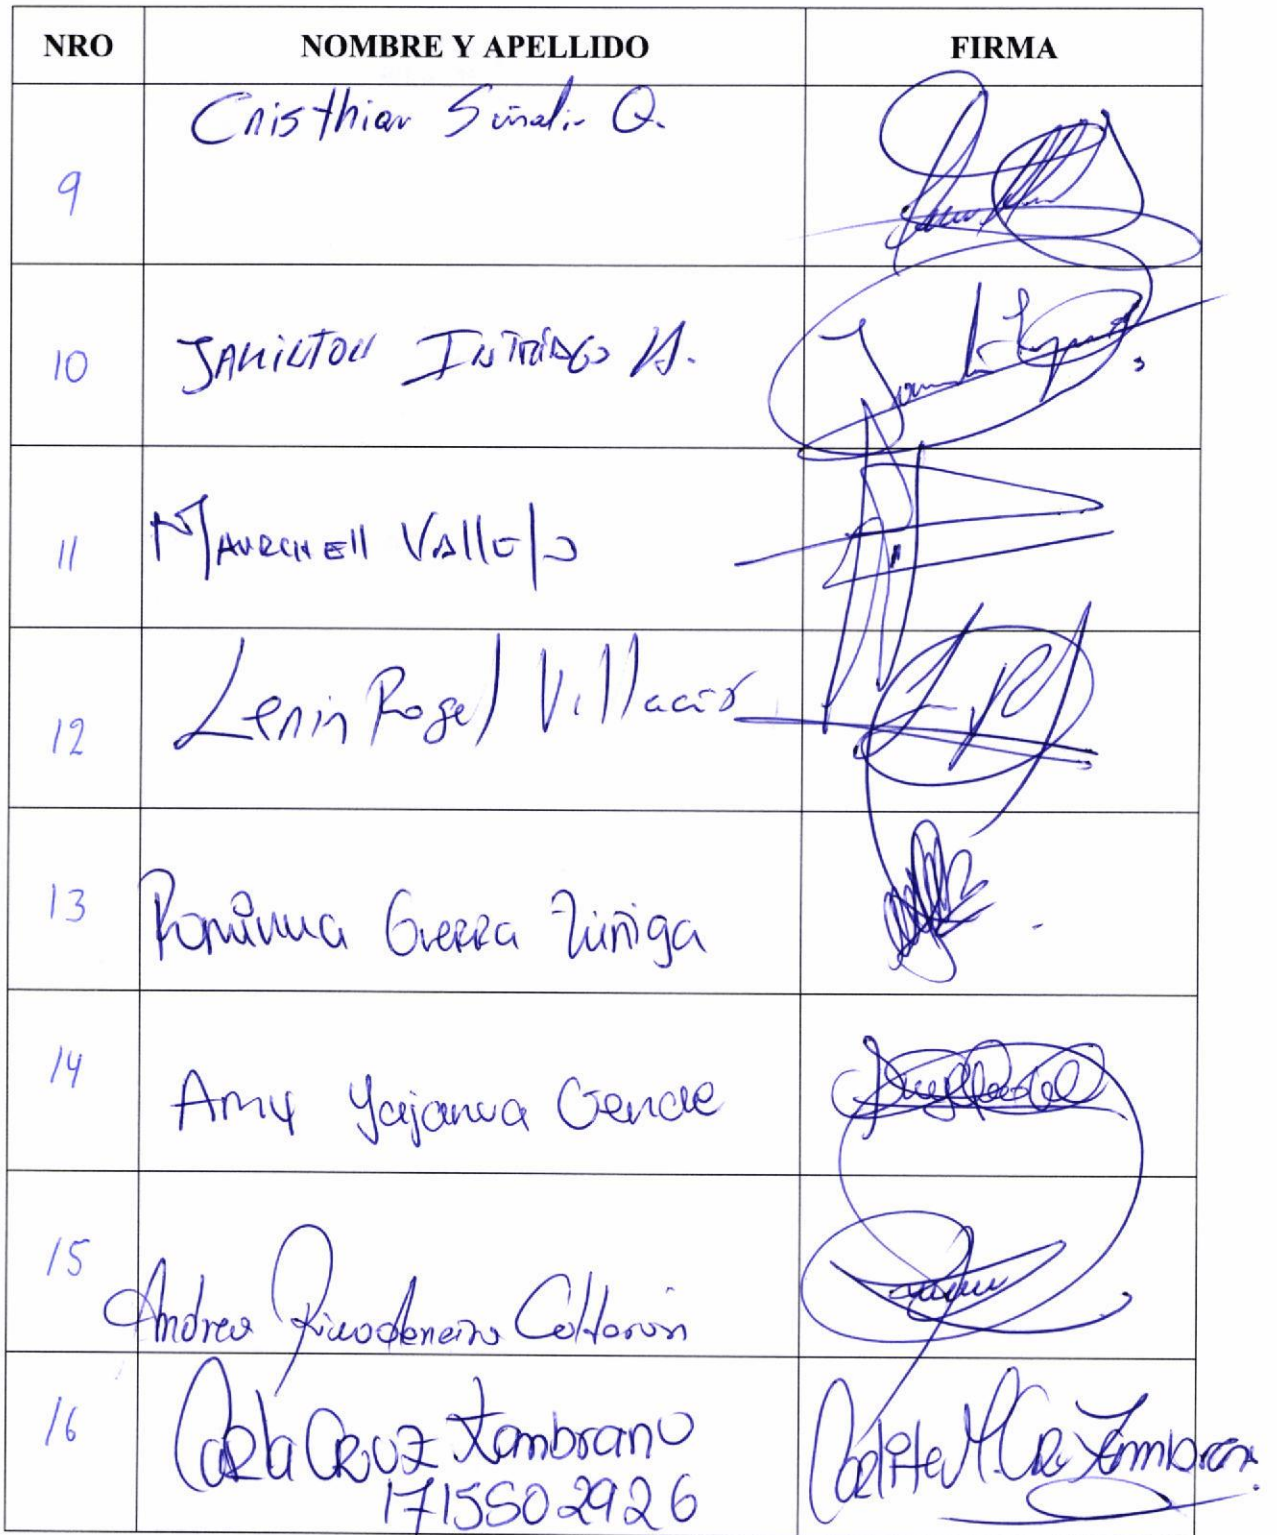 NRO NOMBRE Y APELLIDO FIRMA
9 Cristhian Q.
10 JAMILTON INTRIAGO
11 MAURCHELL VALLEJO
12 Lenin Rogel Villacís
13 Romina Guerra Zúñiga
14 Amy Yajanua Gende
15 Andrea Rivadeneira Calderón
16 Carla Cruz Zambrano
1715502926